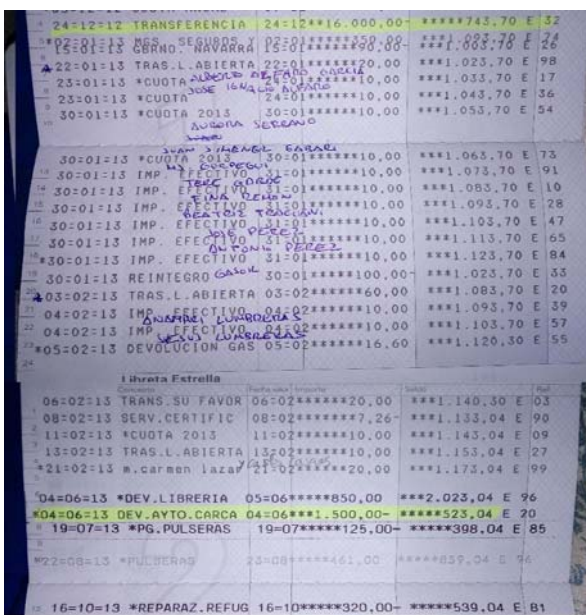 24=12=12 TRANSFERENCIA 24=12**16.000,00- *****743,70 E 32
15=01=13 GBRNO. NAVARRA 15=01******90,00- ***1.003,70 E 26
22=01=13 TRAS.L.ABIERTA 22=01******20,00 ***1.023,70 E 98
ALBERTO ALFARO GARCIA
23=01=13 *CUOTA 24=01******10,00 ***1.033,70 E 17
JOSE IGNACIO ALFARO
23=01=13 *CUOTA 24=01******10,00 ***1.043,70 E 36
30=01=13 *CUOTA 2013 30=01******10,00 ***1.053,70 E 54
AURORA SERRANO
JUAN JIMENEZ GABARI
30=01=13 *CUOTA 2013 30=01******10,00 ***1.063,70 E 73
30=01=13 IMP. EFECTIVO 31=01******10,00 ***1.073,70 E 91
TERE
30=01=13 IMP. EFECTIVO 31=01******10,00 ***1.083,70 E 10
FINA REMON
30=01=13 IMP. EFECTIVO 31=01******10,00 ***1.093,70 E 28
BEATRIZ
30=01=13 IMP. EFECTIVO 31=01******10,00 ***1.103,70 E 47
JOSE PEREZ
30=01=13 IMP. EFECTIVO 31=01******10,00 ***1.113,70 E 65
ANTONIO PEREZ
*30=01=13 IMP. EFECTIVO 31=01******10,00 ***1.123,70 E 84
30=01=13 REINTEGRO GASOIL 30=01*****100,00- ***1.023,70 E 33
03=02=13 TRAS.L.ABIERTA 03=02******60,00 ***1.083,70 E 20
04=02=13 IMP. EFECTIVO 04=02******10,00 ***1.093,70 E 39
ANAMARI LUMBRERAS
04=02=13 IMP. EFECTIVO 04=02******10,00 ***1.103,70 E 57
JESUS LUMBRERAS
*05=02=13 DEVOLUCION GAS 05=02******16,60 ***1.120,30 E 55
Libreta Estrella
Concepto Fecha valor Importe Saldo Ref.
06=02=13 TRANS.SU FAVOR 06=02******20,00 ***1.140,30 E 03
08=02=13 SERV.CERTIFIC 08=02*******7,26- ***1.133,04 E 90
11=02=13 *CUOTA 2013 11=02******10,00 ***1.143,04 E 09
13=02=13 TRAS.L.ABIERTA 13=02******10,00 ***1.153,04 E 27
*21=02=13 m.carmen lazar 21=02******20,00 ***1.173,04 E 99
*04=06=13 *DEV.LIBRERIA 05=06*****850,00 ***2.023,04 E 96
*04=06=13 DEV.AYTO.CARCA 04=06***1.500,00- *****523,04 E 20
19=07=13 *PG.PULSERAS 19=07*****125,00- *****398,04 E 85
*22=08=13 *PULSERAS 23=08*****461,00 *****859,04 E 96
16=10=13 *REPARAZ.REFUG 16=10*****320,00- *****539,04 E 81